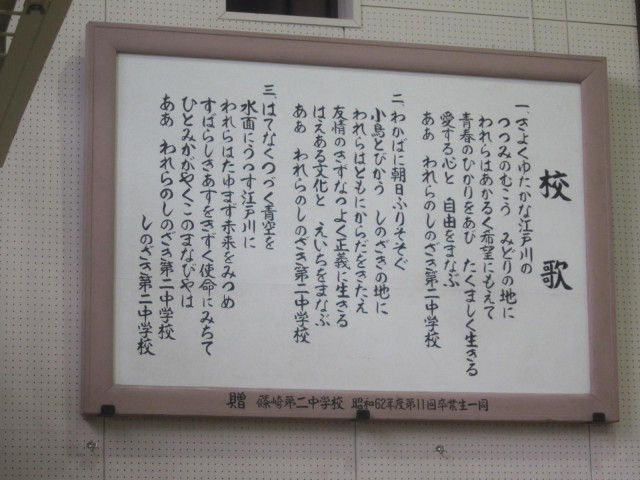 校歌
一、きよくゆたかな江戸川の
つつみのむこう　みどりの地に
われらはあかるく希望にもえて
青春のひかりをあび　たくましく生きる
愛する心と　自由をまなぶ
ああ　われらのしのざき第二中学校
二、わかばに朝日ふりそそぐ
小鳥とびかう　しのざきの地に
われらはともにからだをきたえ
友情のきずなつよく正義に生きる
はえある文化と　えいちをまなぶ
ああ　われらのしのざき第二中学校
三、はてなくつづく青空を
水面にうつす江戸川に
われらはたゆまず未来をみつめ
すばらしきあすをきずく使命にみちて
ひとみかがやくこのまなびやは
ああ　われらのしのざき第二中学校
しのざき第二中学校
贈　篠崎第二中学校　昭和62年度第11回卒業生一同